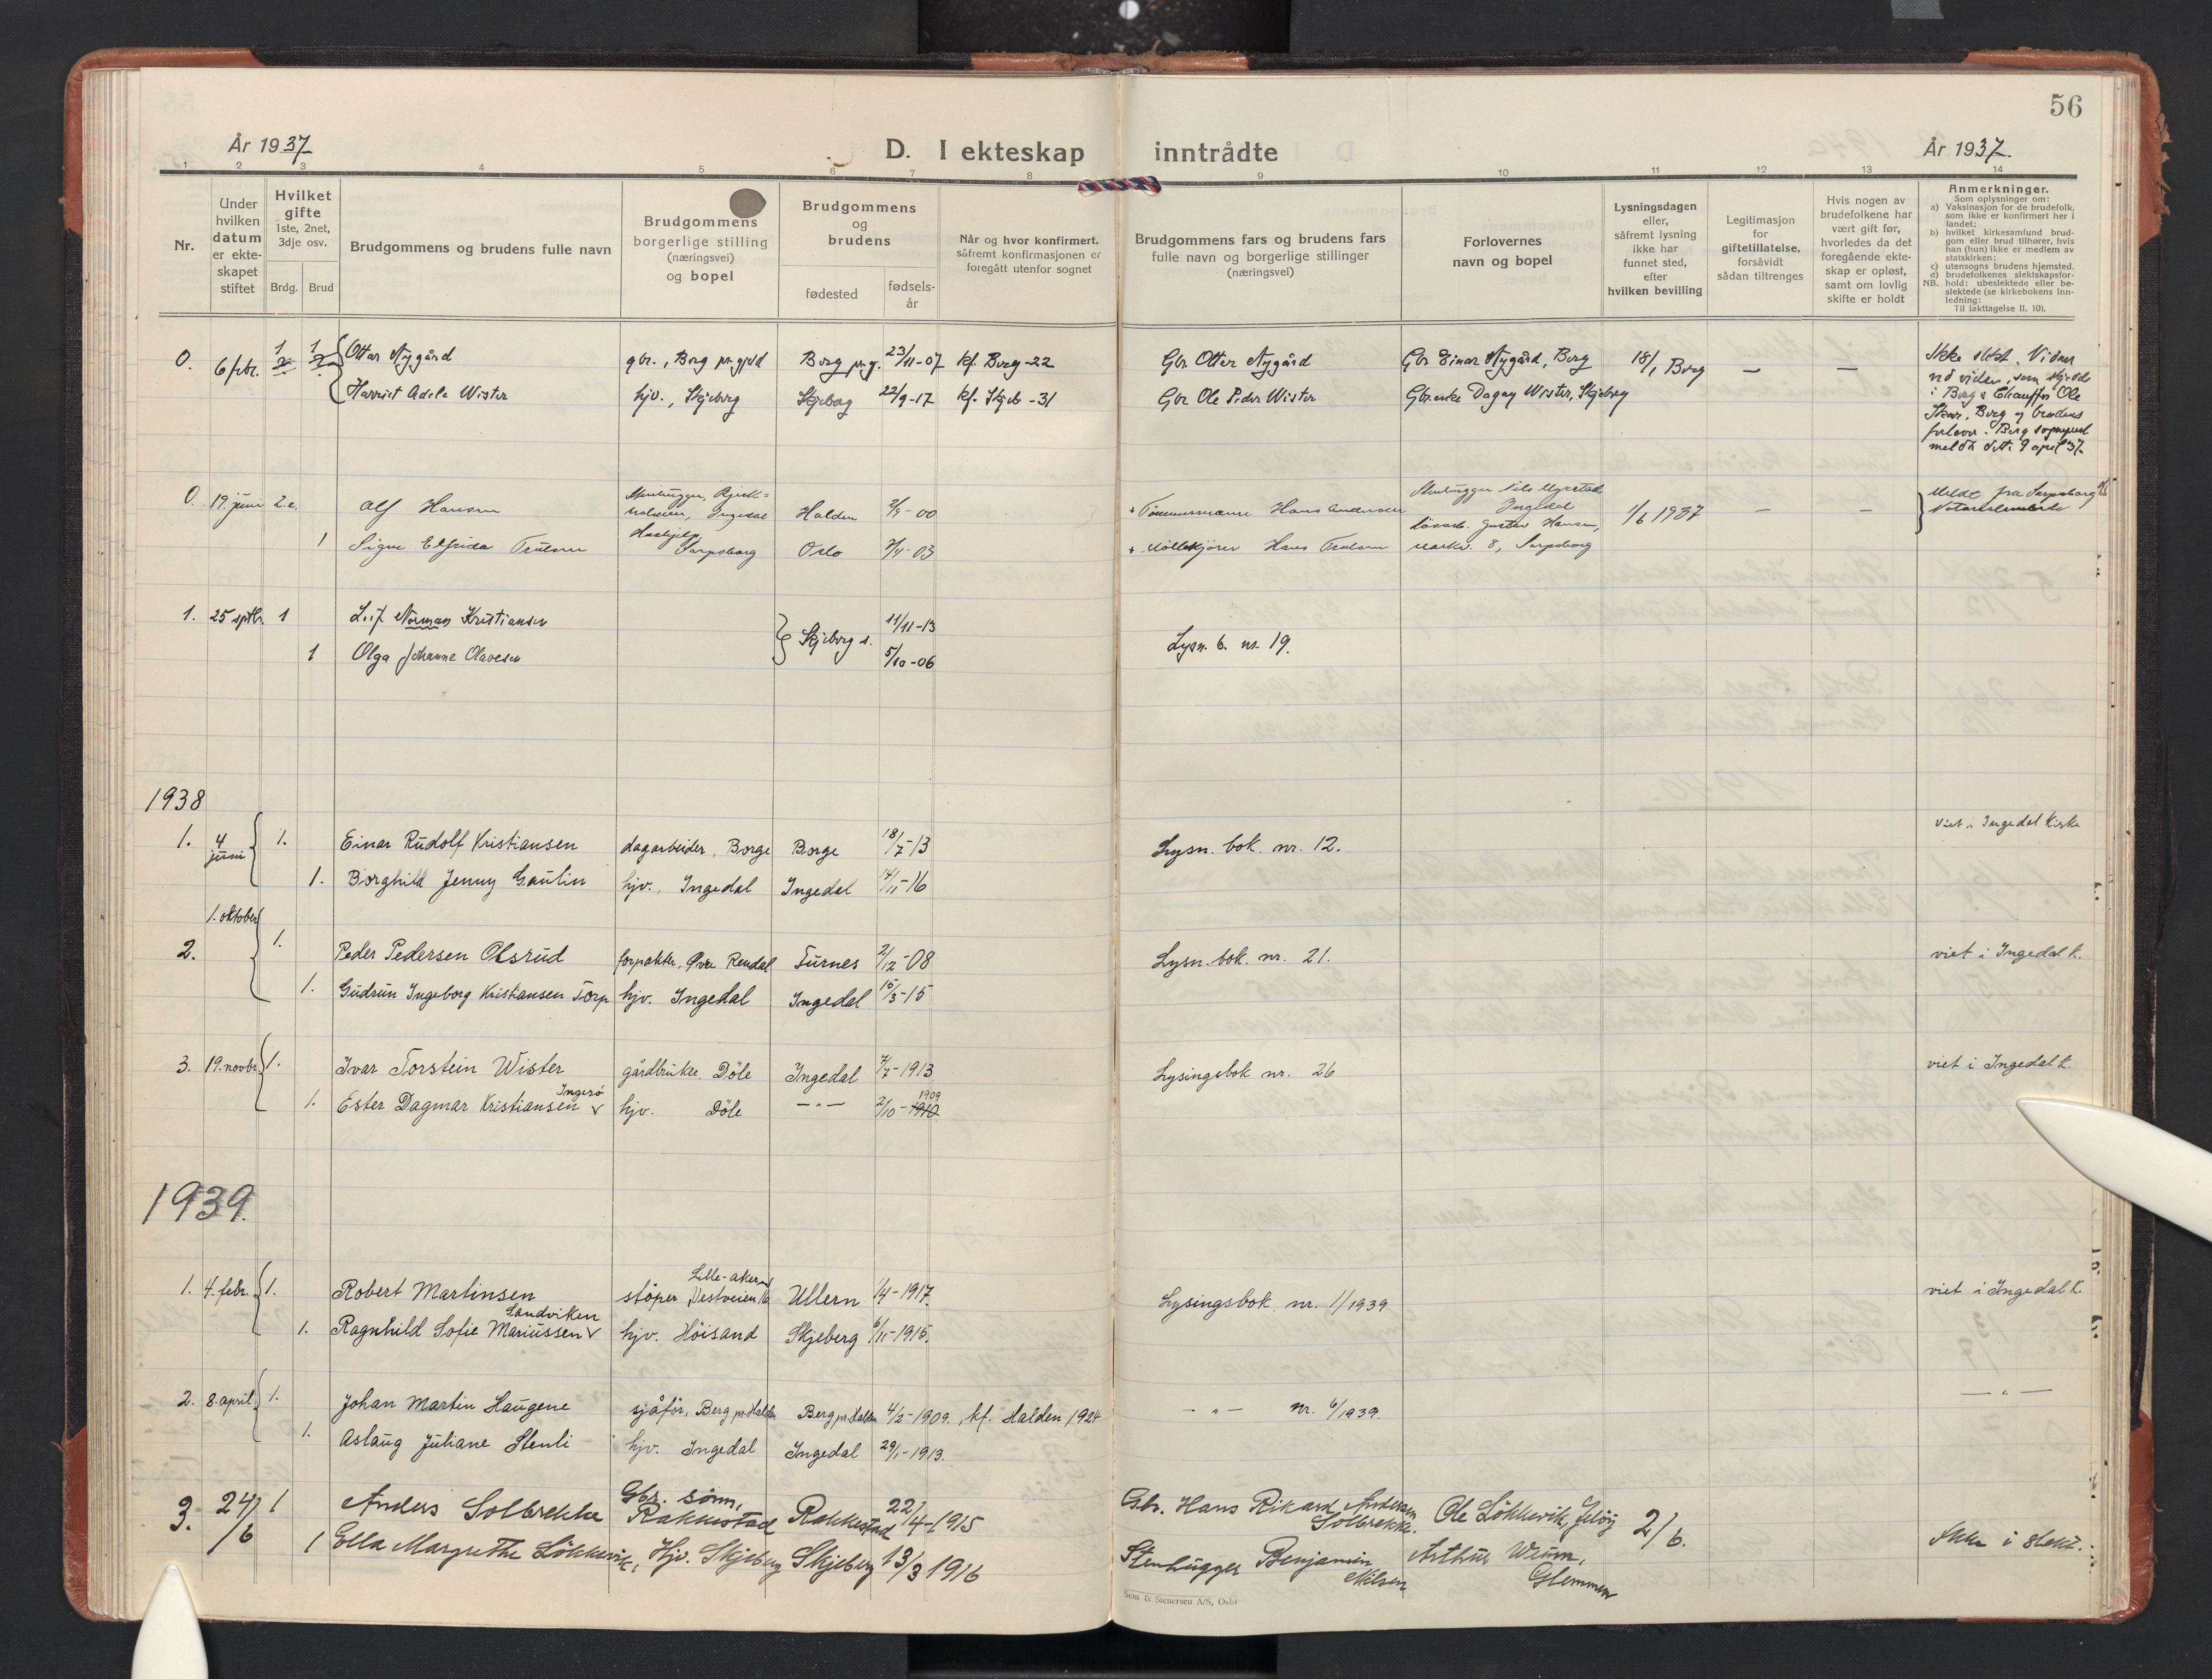 56
År 1937
D. I ekteskap inntrådte
År 1937.
1 2 3 4 5 6 7 8 9 10 11 12 13 14
Nr.
Under
hvilken
datum
er ekte-
skapet
stiftet
Hvilket
gifte
1ste, 2net,
3dje osv.
Brdg. Brud
Brudgommens og brudens fulle navn
Brudgommens
borgerlige stilling
(næringsvei)
og bopel
Brudgommens
og
brudens
fødested
fødsels-
år
Når og hvor konfirmert,
såfremt konfirmasjonen er
foregått utenfor sognet
Brudgommens fars og brudens fars
fulle navn og borgerlige stillinger
(næringsvei)
Forlovernes
navn og bopel
Lysningsdagen
eller,
såfremt lysning
ikke har
funnet sted,
efter
hvilken bevilling
Legitimasjon
for
giftetillatelse,
forsåvidt
sådan tiltrenges
Hvis nogen av
brudefolkene har
vært gift før,
hvorledes da det
foregående ekte-
skap er opløst,
samt om lovlig
skifte er holdt
Anmerkninger.
Som oplysninger om:
a) Vaksinasjon for de brudefolk,
som ikke er konfirmert her i
landet;
b) hvilket kirkesamfund brud-
gom eller brud tilhører, hvis
han (hun) ikke er medlem av
statskirken;
c) utensogns brudens hjemsted.
d) brudefolkenes slektskapsfor-
NB. hold: ubeslektede eller be-
slektede (se kirkebokens inn-
ledning:
Til iakttagelse II. 10).
0. 6 febr. 1 1 Ottar Nygård gbr., Borg pr.gjeld Borg pr.g. 23/11-07 kf. Borg -22 Gbr Otter Nygård Gbr Einar Nygård, Borg 18/1 Borg — —
Harriet Adele Wister hjv., Skjeberg Skjeberg 22/9-17 kf. Skjeb -31 Gbr Ole Peder Wister Gbr.enke Dagny Wister, Skjeberg
Ikke slekt. Vidner
ved vielsen, som skjedde
i Borg: Chauffør Ole
Skar, Borg og brudens
forlover. Borg sogneprest
meldt dette 9 april 37.
0. 19. juni 2. e. Alf Hansen Ingedal Halden 2/9-00 + Tømmermann Hans Andersen Ingedal 1/6 1937 — —
1 Signe Elfrida Trulsen Sarpsborg Oslo 7/11-03 + Møllekjører Hans Trulsen Gustav Hansen, 8, Sarpsborg
Meldt fra Sarpsborg
1. 25 sptbr. 1 Leif Norman Kristiansen Skjeberg s. 11/11-13
1 Olga Johanne Olavesen 5/10-06
Lysn. b. nr. 19.
1938
1. 4 juni 1. Einar Rudolf Kristiansen dagarbeider, Borge Borge 18/7-13 Lysn. bok. nr. 12. viet i Ingedal Kirke
1. Borghild Jenny Gautin hjv., Ingedal Ingedal 14/11-16
1. oktober
2. 1. Peder Pedersen Olsrud forpakter, Øvre Rendal Furnes 2/12-08 Lysn. bok. nr. 21. viet i Ingedal k.
1. Gudrun Ingeborg Kristiansen Torp hjv. Ingedal Ingedal 15/3-15
3. 19. novbr. 1. Ivar Torstein Wister gårdbruker. Döle Ingedal 7/7-1913 Lysingsbok nr. 26 viet i Ingedal k.
Ingerö 1909
1. Ester Dagmar Kristiansen v hjv. Döle —"— 2/10-1910
1939.
Lille-aker
1. 4. febr. 1. Robert Martinsen støper, Vestveien 16 Ullern 1/4-1917. Lysingsbok nr. 1/1939 viet i Ingedal k.
Sandviken
1. Ragnhild Sofie Mariussen v hjv. Höisand Skjeberg 6/11-1915.
2. 8. april 1. Johan Martin Haugene sjåför, Berg pr. Halden Berg pr. Halden 4/2-1909. kf. Halden 1924 —"— nr. 6/1939. —"—
1. Aslaug Juliane Stenli hjv. Ingedal Ingedal 29/1-1913.
3. 24/6 1 Anders Solbrekke Gbr. sønn, Rakkestad Rakkestad 22/4-1915 Gbr. Hans Rikard Andersen Solbrekke. Ole Løkkevik, Jeløy 2/6. Ikke i slekt.
1 Ella Margrethe Løkkevik, Hjv. Skjeberg Skjeberg 13/3 1916 Stenhugger Benjamin Nilsen Arthur Wium, Glemmen
Sem & Stenersen A/S, Oslo